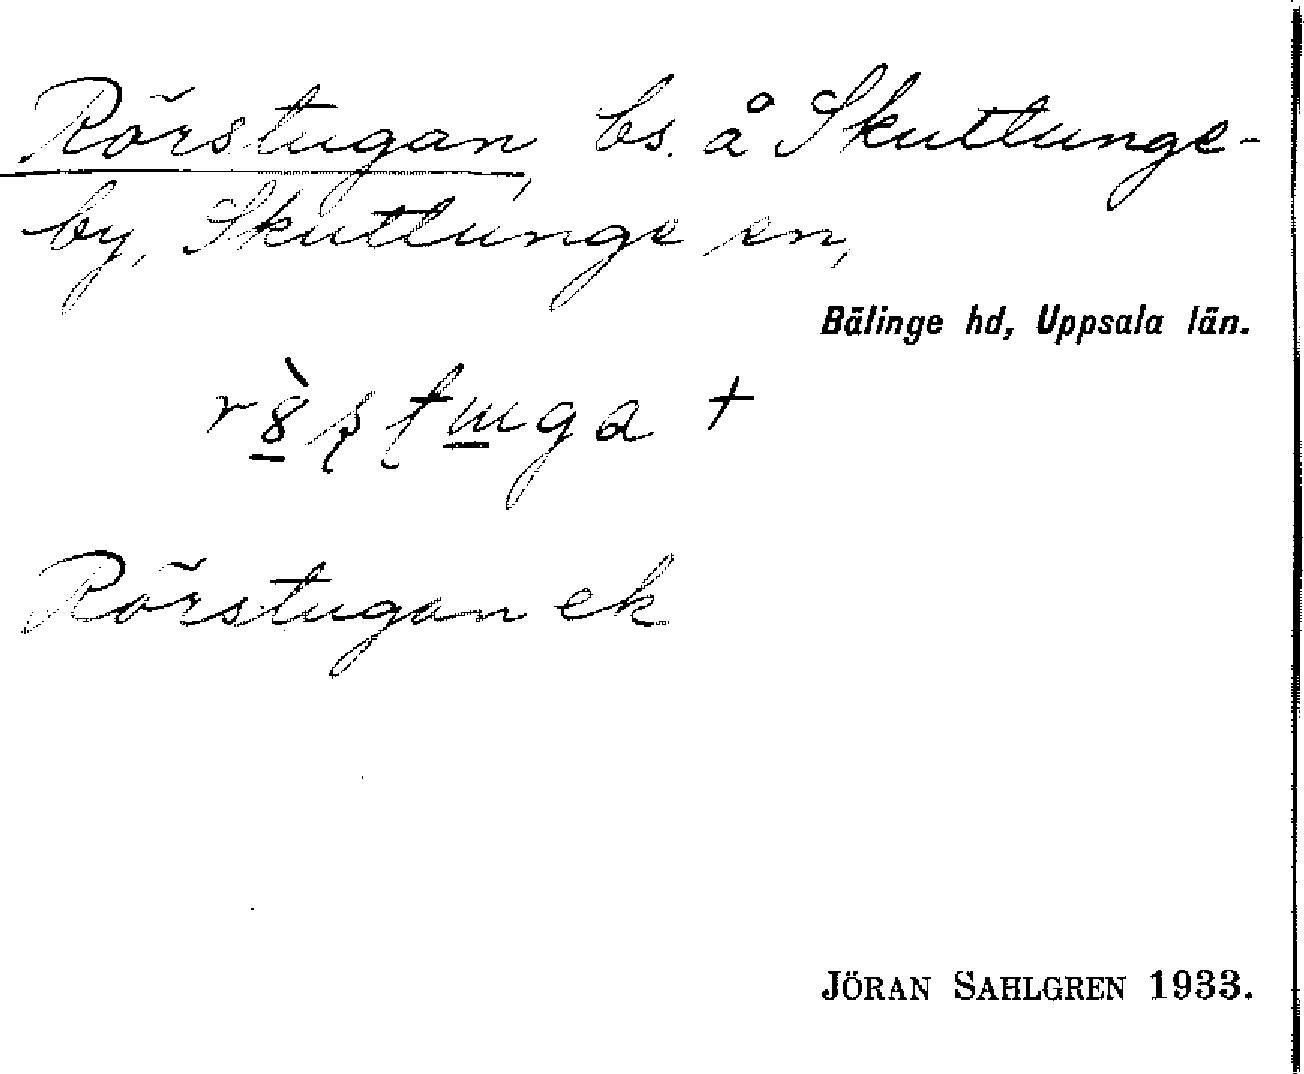 Rörstugan, bs. å Skuttunge-
by, Skuttunge sn,
Bälinge hd, Uppsala län.
Rörstugan ek
JÖRAN SAHLGREN 1933.